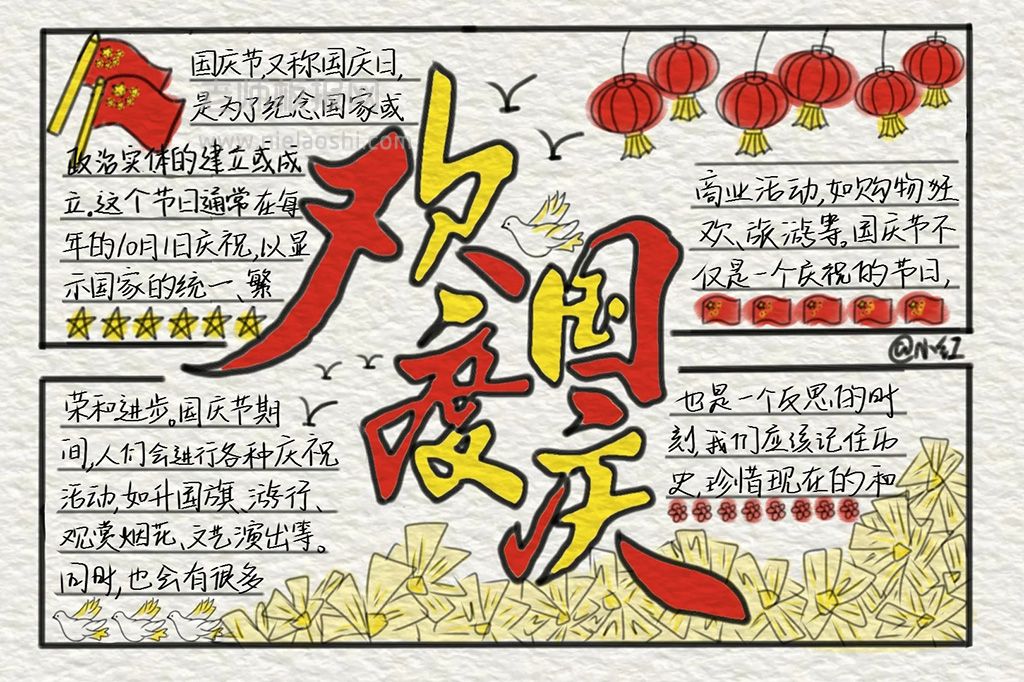 国庆节,又称国庆日,
是为了纪念国家或
www.nielaoshi.com
政治实体的建立或成
立。这个节日通常在每
年的10月1日庆祝,以显
示国家的统一、繁
荣和进步。国庆节期
间,人们会进行各种庆祝
活动,如升国旗、游行、
观赏烟花、文艺演出等。
同时,也会有很多
欢度
国庆
商业活动,如购物狂
欢、旅游等。国庆节不
仅是一个庆祝的节日,
也是一个反思的时
刻,我们应该记住历
史,珍惜现在的和